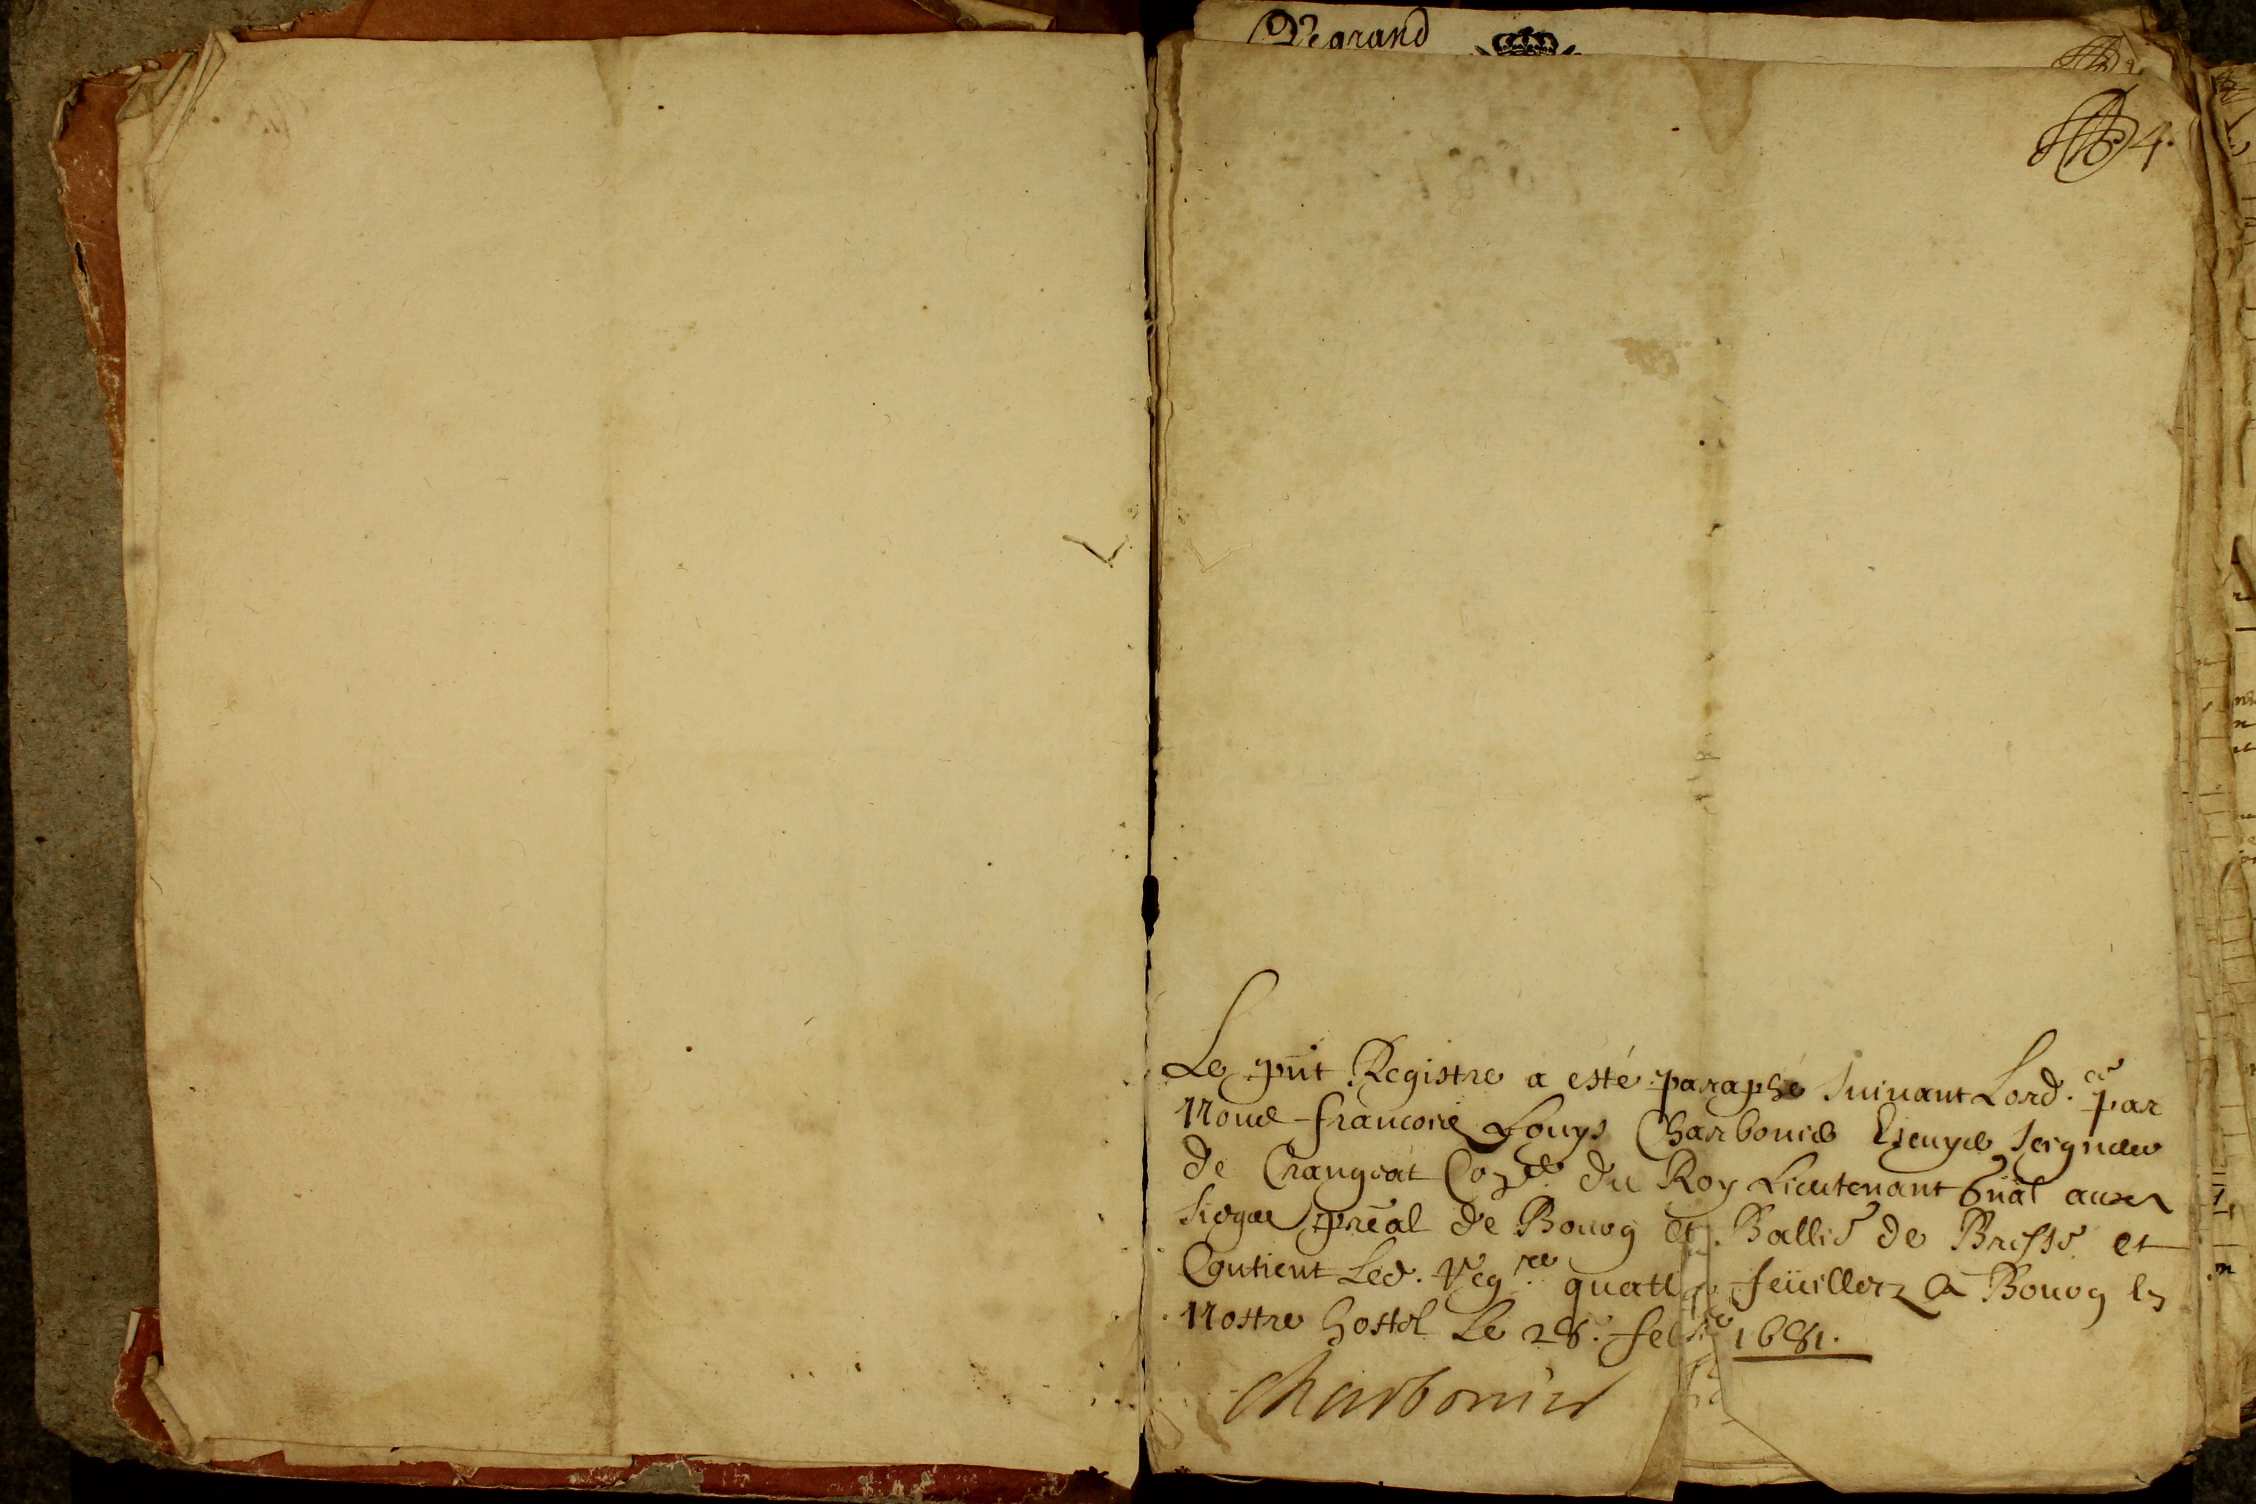 Degrand
4.
Le pnt Registre a esté paraphé suivant Lord.ce par
Nous francois Louys Charbonier Escuyer seigneur
de Crangeat Con.er du Roy Lieutenant gnal aux
sieges preal de Bourg et Balli.e de Bresse et
Contient Led. Reg.re quattre feüillets A Bourg en
Nostre hostel Le 28.e feb.er 1681.
Charbonier